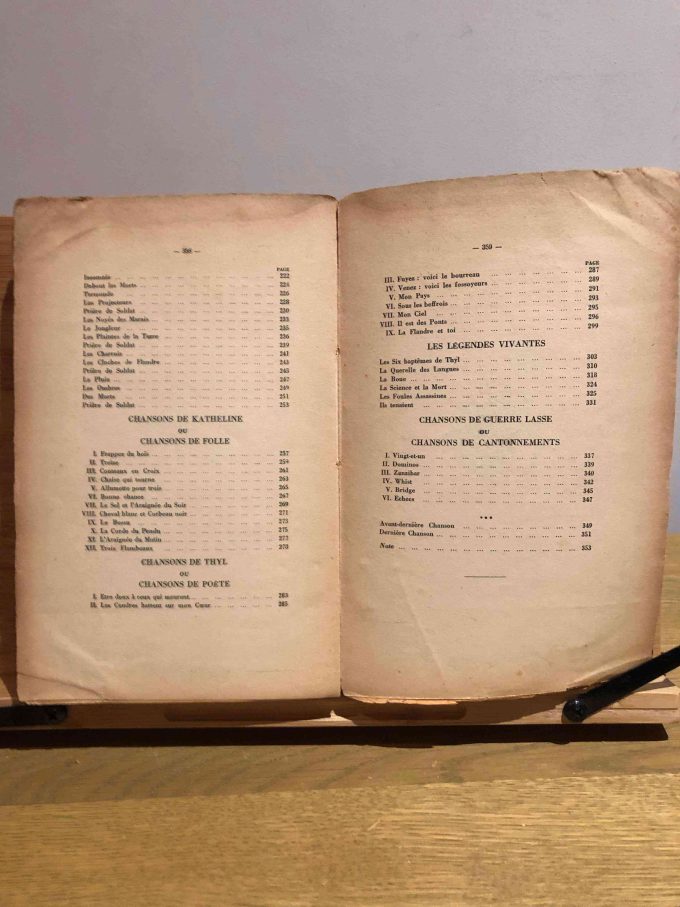 — 358 —
PAGE
Insomnie ... 222
Debout les Morts ... 224
Tornoude ... 226
Les Projecteurs ... 228
Prière de Soldat ... 230
Les Noyés des Marais ... 233
Le Jongleur ... 235
Les Plaintes de la Terre ... 236
Prière de Soldat ... 239
Les Charrois ... 241
Les Cloches de Flandre ... 243
Prière de Soldat ... 245
La Pluie ... 247
Les Ombres ... 249
Des Morts ... 251
Prière de Soldat ... 253
CHANSONS DE KATHELINE
OU
CHANSONS DE FOLLE
I. Frappez du bois ... 257
II. Treize ... 259
III. Couteaux en Croix ... 261
IV. Chaise qui tourne ... 263
V. Allumette pour trois ... 265
VI. Bonne chance ... 267
VII. Le Sel et l'Araignée du Soir ... 269
VIII. Cheval blanc et Corbeau noir ... 271
IX. Le Bossu ... 273
X. La Corde du Pendu ... 275
XI. L'Araignée du Matin ... 277
XII. Trois Flambeaux ... 279
CHANSONS DE THYL
OU
CHANSONS DE POÈTE
I. Etre doux à ceux qui meurent ... 283
II. Les Cendres battent sur mon Cœur ... 285
— 359 —
PAGE
III. Fuyez : voici le bourreau ... 287
IV. Venez : voici les fossoyeurs ... 289
V. Mon Pays ... 291
VI. Sous les beffrois ... 293
VII. Mon Ciel ... 295
VIII. Il est des Ponts ... 296
IX. La Flandre et toi ... 299
LES LÉGENDES VIVANTES
Les Six baptêmes de Thyl ... 303
La Querelle des Langues ... 310
La Boue ... 318
La Science et la Mort ... 324
Les Foules Assassines ... 325
Ils tensient ... 331
CHANSONS DE GUERRE LASSE
OU
CHANSONS DE CANTONNEMENTS
I. Vingt-et-un ... 337
II. Dominos ... 339
III. Zanzibar ... 340
IV. Whist ... 342
V. Bridge ... 345
VI. Echecs ... 347
***
Avant-dernière Chanson ... 349
Dernière Chanson ... 351
Note ... 353